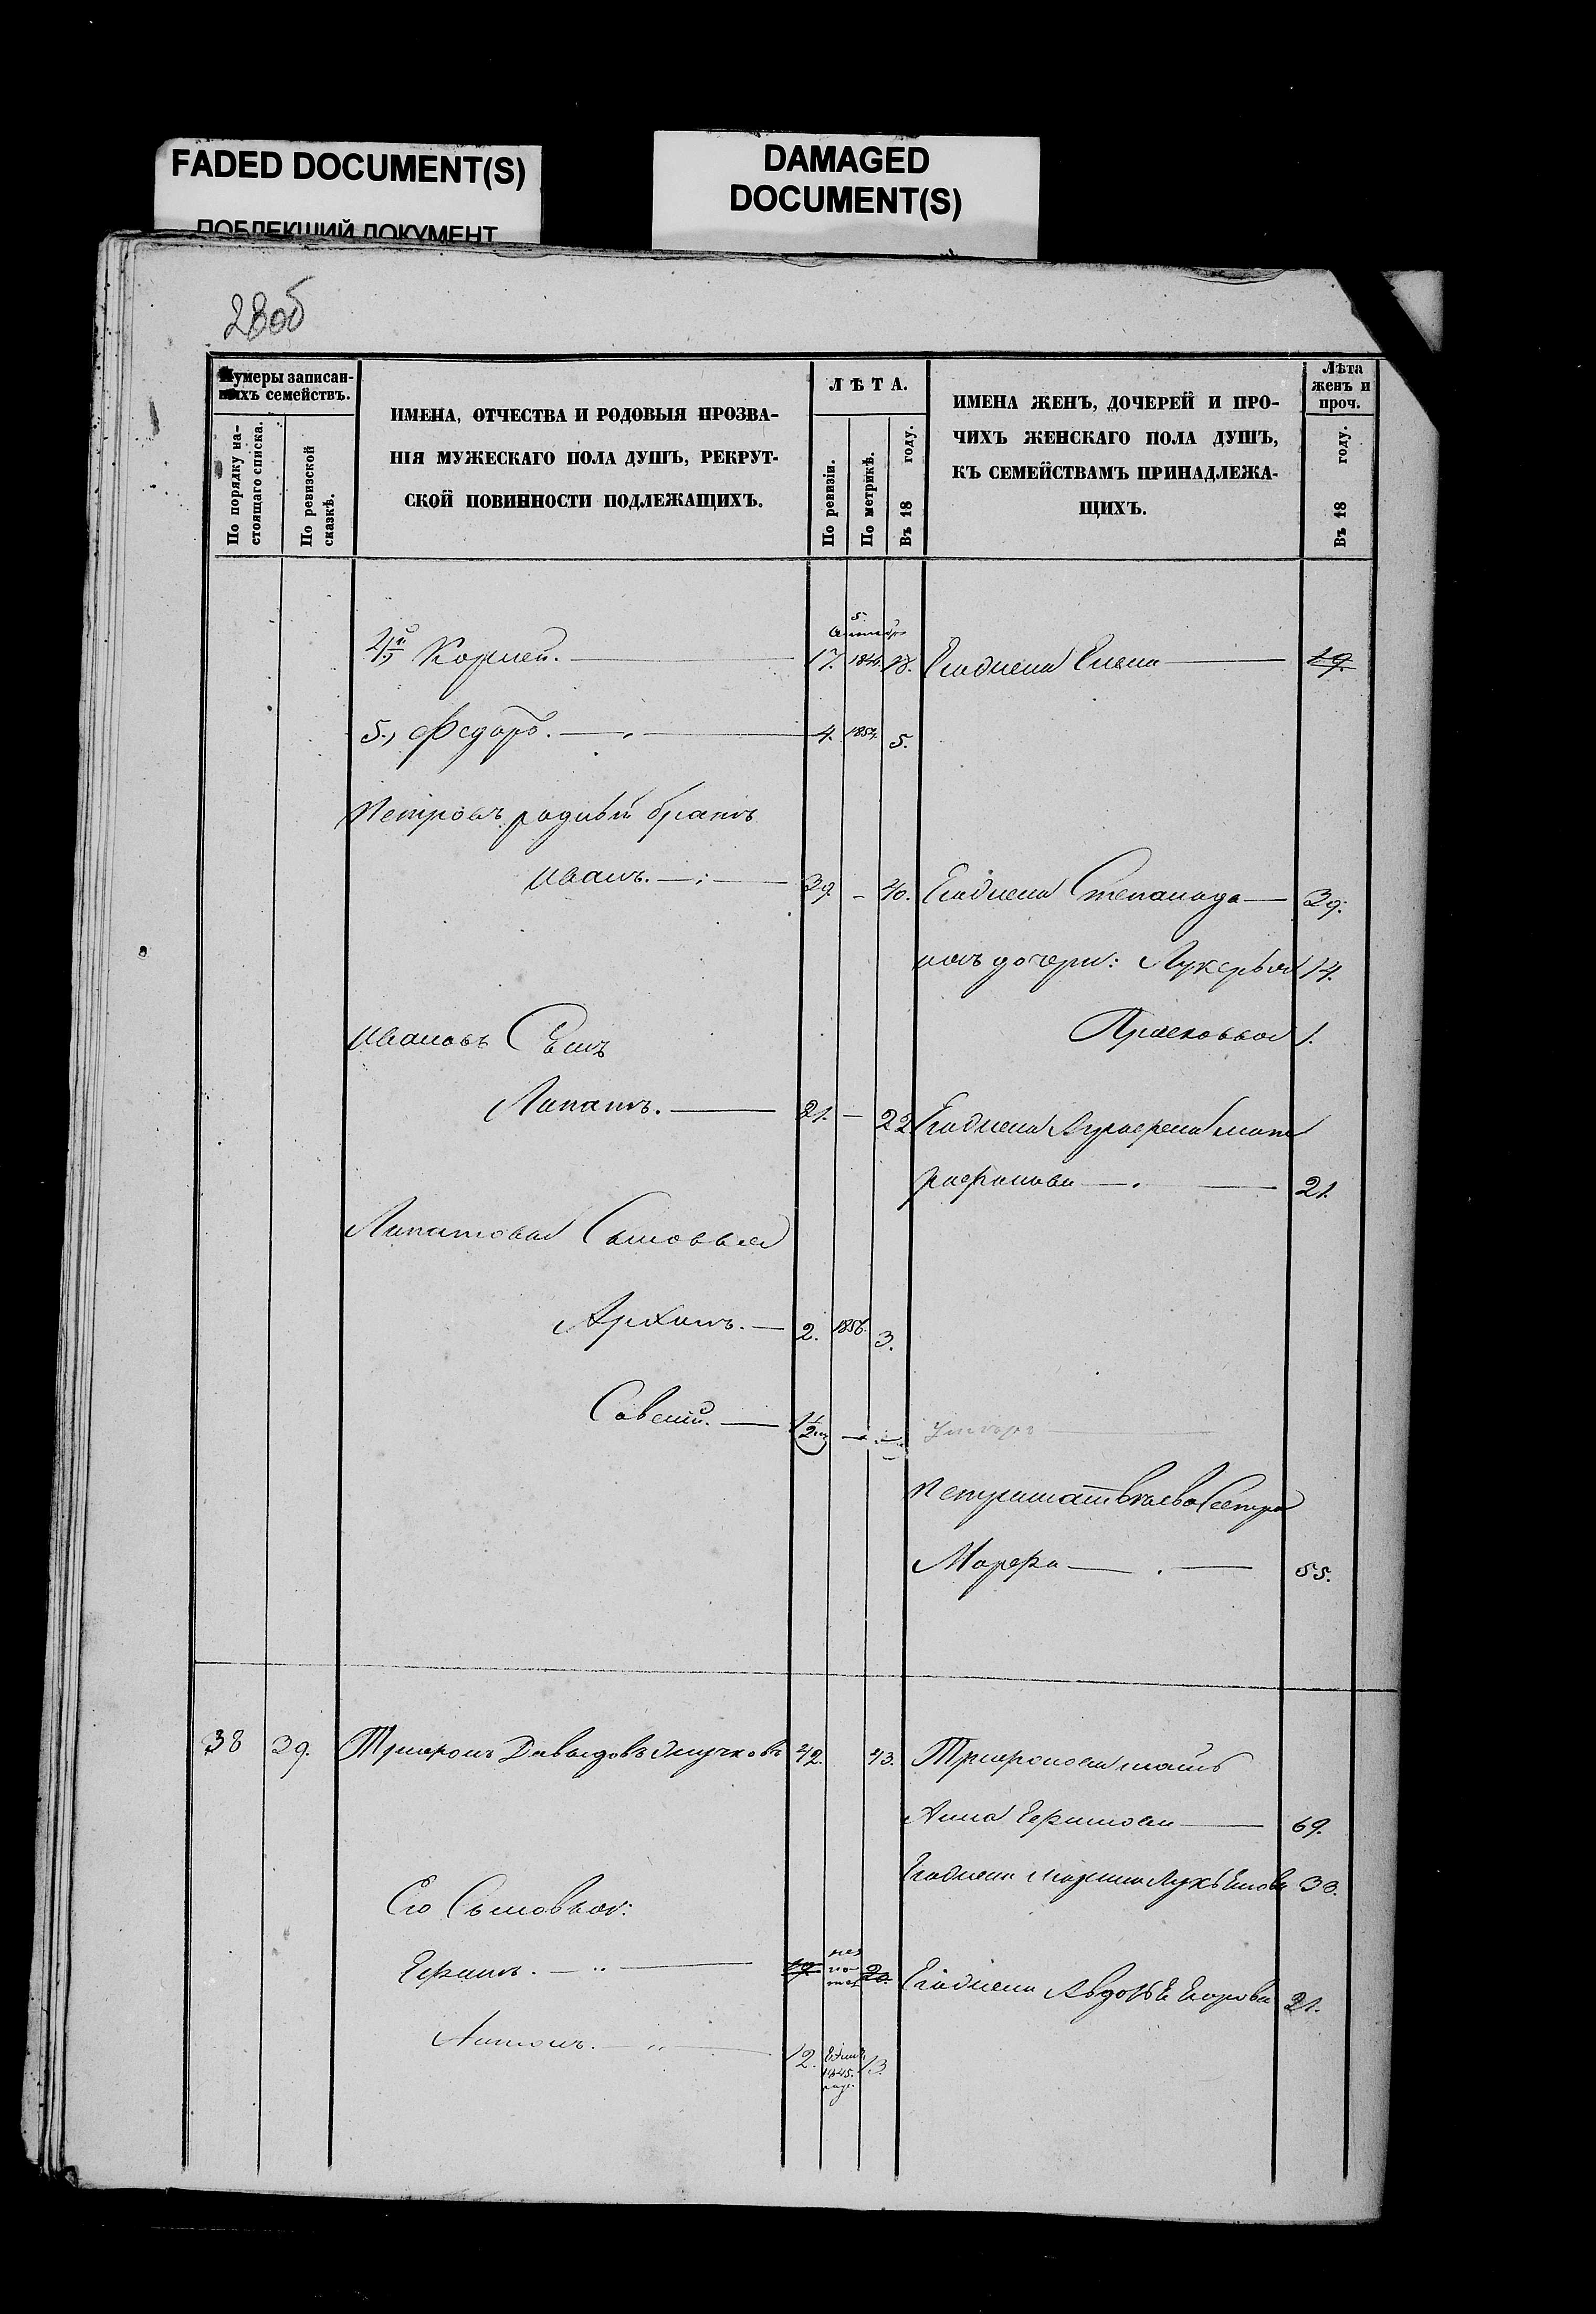 FADED DOCUMENT(S)
ПОБЛЕКШИЙ ДОКУМЕНТ
DAMAGED
DOCUMENT(S)
28об
Нумеры записан-
ныхъ семействъ.
По порядку на-
стоящаго списка.
По ревизской
сказкѣ.
ИМЕНА, ОТЧЕСТВА И РОДОВЫЯ ПРОЗВА-
НІЯ МУЖЕСКАГО ПОЛА ДУШЪ, РЕКРУТ-
СКОЙ ПОВИННОСТИ ПОДЛЕЖАЩИХЪ.
ЛѢТА.
По ревизіи.
По метрикѣ.
Въ 18 году.
ИМЕНА ЖЕНЪ, ДОЧЕРЕЙ И ПРО-
ЧИХЪ ЖЕНСКАГО ПОЛА ДУШЪ,
КЪ СЕМЕЙСТВАМЪ ПРИНАДЛЕЖА-
ЩИХЪ.
Лѣта
женъ и
проч.
Въ 18 году.
4й Корней. — 17. 18. Его жена Елена — 19.
5., Федоръ. — 4. 1854. 5.
Петровъ родной братъ
Иванъ. — 39. — 40. Его жена Степанида — 39.
ихъ дочери: Лукерья 14.
Прасковья 1.
Ивановъ Сынъ
Липатъ. — 21. — 22 Его жена Аграфена
21.
Липатовы Сыновья
Архипъ. — 2. 1856. 3.
Савелій. — — —
Сестра
Марфа — 55.
38 39. Трифонъ Давыдовъ 42. 43. Трифонова мать
Анна Ефимова — 69.
Его жена Марина Лукьянова 38.
Его Сыновья:
Ефимъ. — 19. 20. Его жена Авдотья Егорова 21.
Антонъ. — 12. 1845. 13.